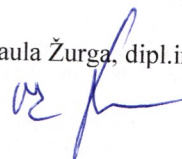 aula Žurga, dipl.i